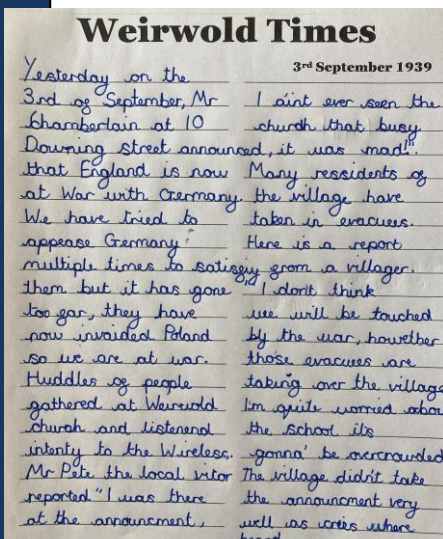 Weirwold Times
3rd September 1939
Yesterday on the
3rd of September, Mr
Chamberlain at 10
Downing street announced,
that England is now
at War with Germany.
We have tried to
appease Germany
multiple times to satisfiy
them but it has gone
too far, they have
now invaided Poland
so we are at war.
Huddles of people
gathered at Weirwold
church and listenend
intenty to the Wireless.
Mr Pete the local vitor
reported "I was there
at the announcment,
I aint ever seen the
church that busy
it was mad!".
Many ressidents of
the village have
taken in evacuees.
Here is a report
from a villager.
"I don't think
wee will be touched
by the war, howether
those evacuees are
taking over the village
I'm quite worried abou
the school its
gonna' be overcrowded
The village didn't take
the announcment very
well as cries where